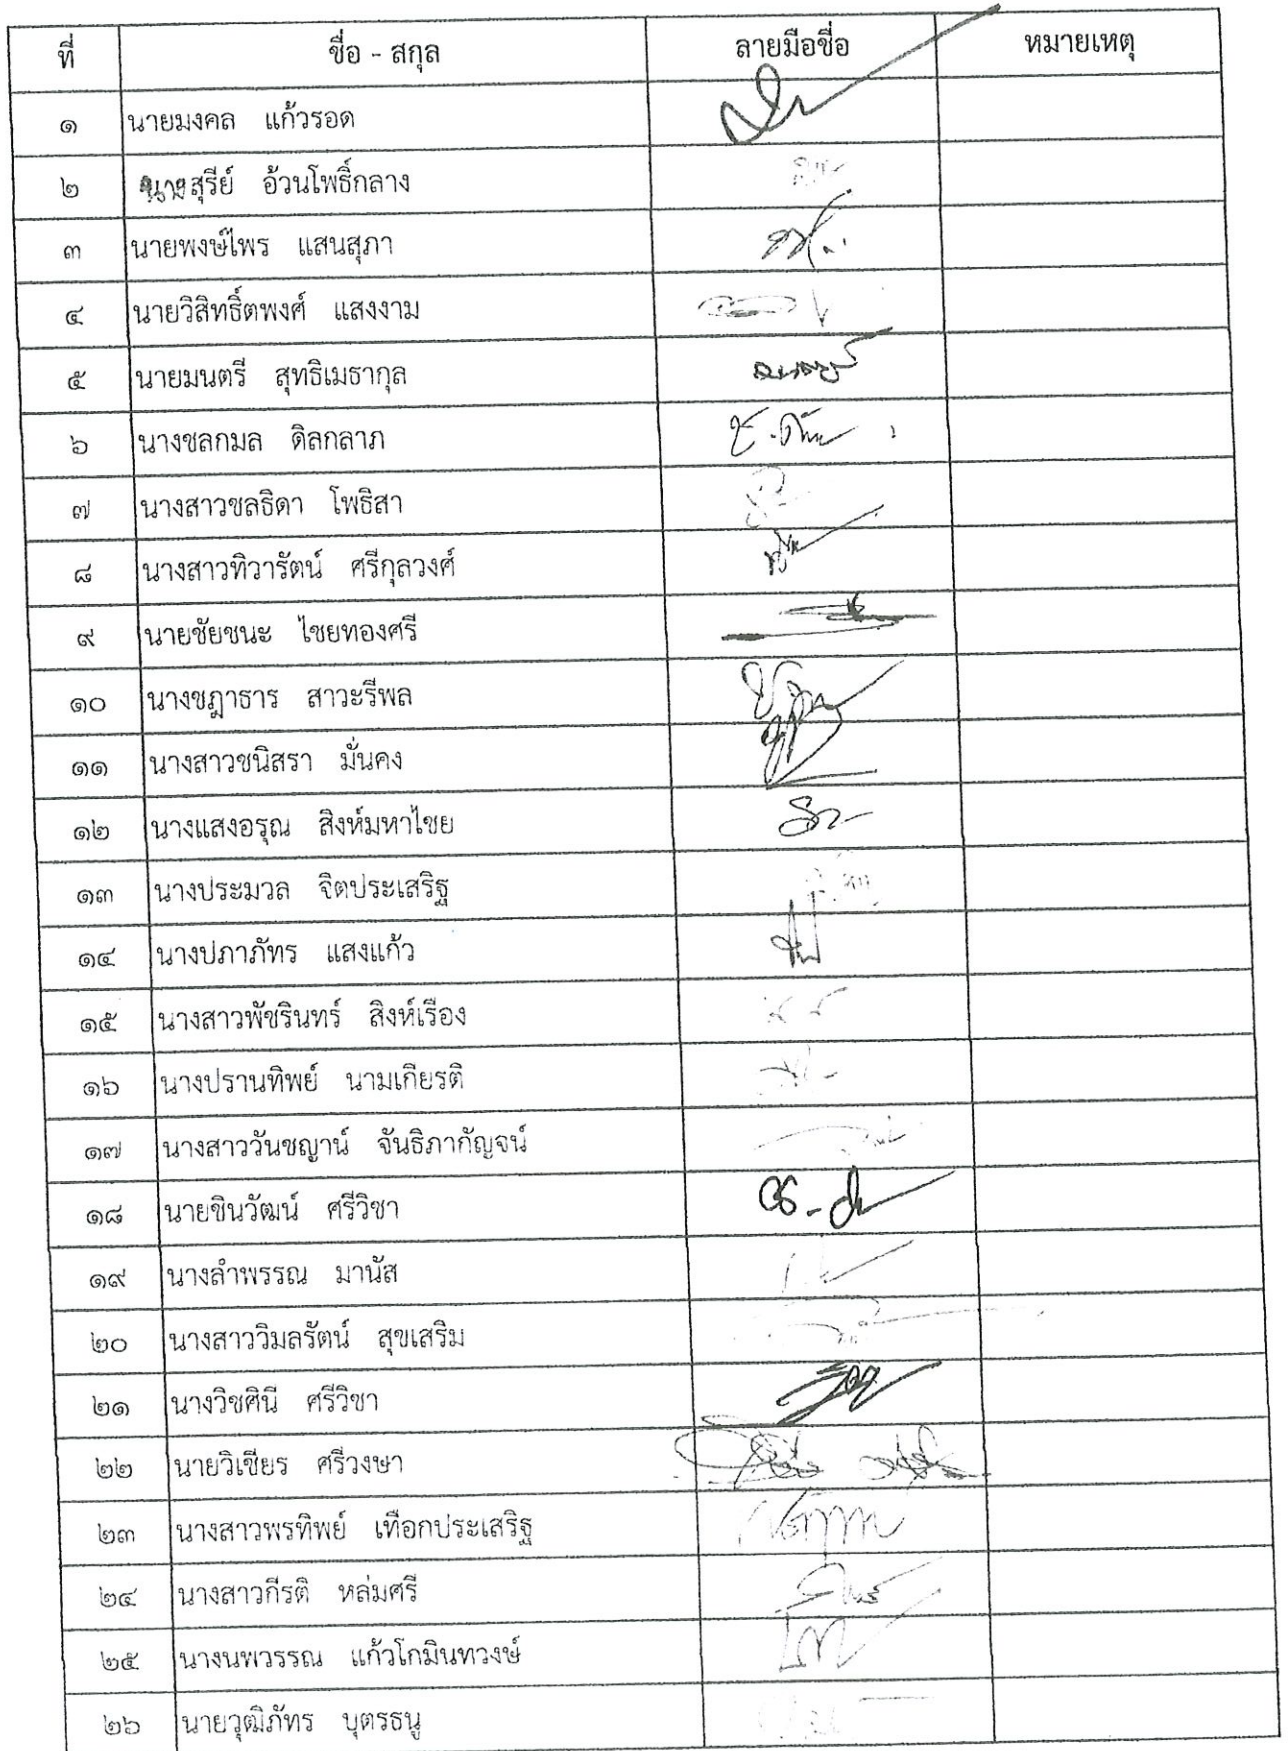 ที่ ชื่อ - สกุล ลายมือชื่อ หมายเหตุ
๑ นายมงคล แก้วรอด
๒ สุรีย์ อ้วนโพธิ์กลาง
๓ นายพงษ์ไพร แสนสุภา
๔ นายวิสิทธิ์ตพงศ์ แสงงาม
๕ นายมนตรี สุทธิเมธากุล
๖ นางชลกมล ดิลกลาภ
๗ นางสาวชลธิดา โพธิสา
๘ นางสาวทิวารัตน์ ศรีกุลวงศ์
๙ นายชัยชนะ ไชยทองศรี
๑๐ นางชฎาธาร สาวะรีพล
๑๑ นางสาวชนิสรา มั่นคง
๑๒ นางแสงอรุณ สิงห์มหาไชย
๑๓ นางประมวล จิตประเสริฐ
๑๔ นางปภาภัทร แสงแก้ว
๑๕ นางสาวพัชรินทร์ สิงห์เรือง
๑๖ นางปรานทิพย์ นามเกียรติ
๑๗ นางสาววันชญาน์ จันธิภากัญจน์
๑๘ นายชินวัฒน์ ศรีวิชา
๑๙ นางลำพรรณ มานัส
๒๐ นางสาววิมลรัตน์ สุขเสริม
๒๑ นางวิชศินี ศรีวิชา
๒๒ นายวิเชียร ศรีวงษา
๒๓ นางสาวพรทิพย์ เทือกประเสริฐ
๒๔ นางสาวกีรติ หล่มศรี
๒๕ นางนพวรรณ แก้วโกมินทวงษ์
๒๖ นายวุฒิภัทร บุตรธนู